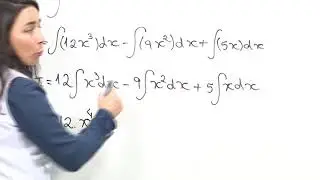 = ∫(12x³)dx - ∫(9x²)dx + ∫(5x)dx
= 12∫x³dx - 9∫x²dx + 5∫xdx
12. x⁴